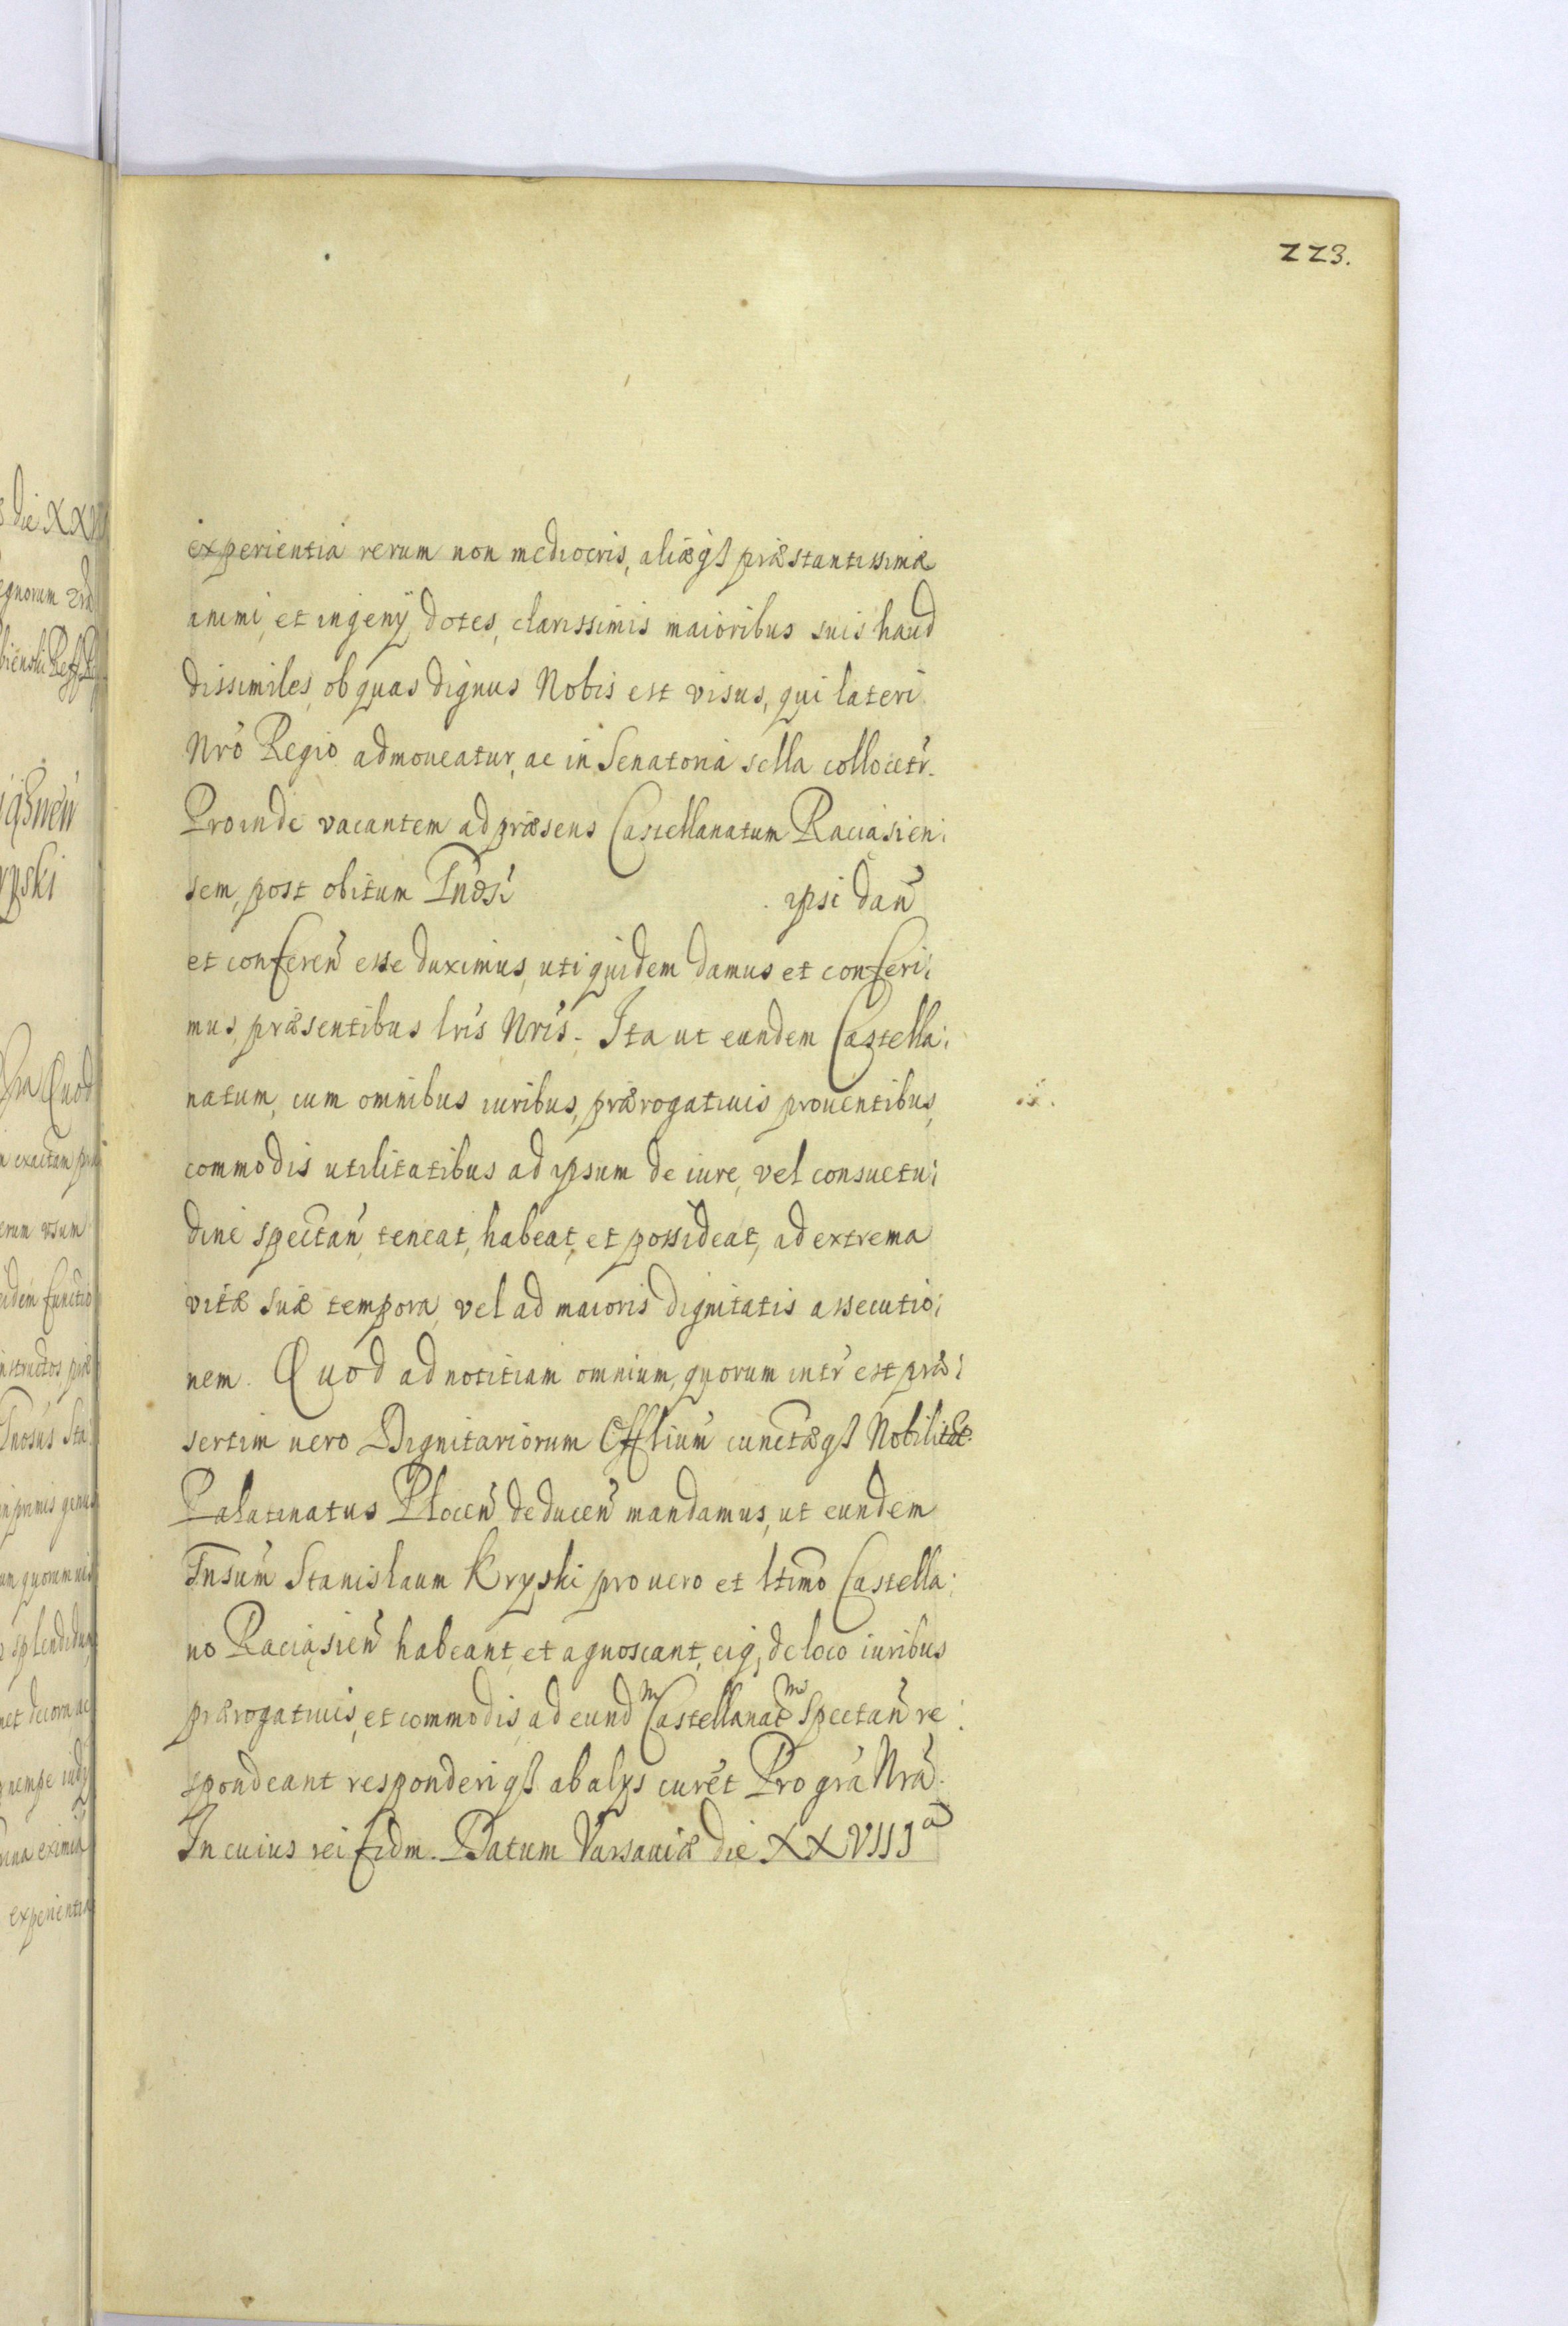 223.
experientia rerum non mediocris, aliæq3 præstantissimæ
animi, et ingenÿ dotes, clarissimis maioribus suis haud
dissimiles, ob quas dignus Nobis est visus, qui lateri
Nrõ Regio admoueatur, ac in Senatoria sella collocetr.
Proinde vacantem ad præsens Castellanatum Raciąsien:
sem, post obitum Gnosi ipsi dan̄
et conferen̄ esse duximus, uti quidem damus et conferi:
mus, præsentibus lris Nris. Ita ut eundem Castella:
natum, cum omnibus iuribus, prærogatiuis prouentibus,
commodis utilitatibus ad ipsum de iure, vel consuetu:
dine spectan̄, teneat, habeat, et possideat, ad extrema
vitæ suæ tempora, vel ad maioris dignitatis assecutio:
nem. Quod ad notitiam omnium, quorum intr̃ est præ:
sertim uero Dignitariorum Offlium̄ cunctæq3 Nobilitat:
Palatinatus Plocen̄ deducen̄ mandamus, ut eundem
Gnsum̄ Stanislaum Kryski pro uero et ltimo Castella:
no Raciąsien̄ habeant, et agnoscant, eiq; de loco iuribus
prærogatiuis, et commodis, ad eundm Castellanatm spectan̄ re:
spondeant responderiq3 ab alÿs curẽt Pro grã Nrã.
In cuius rei fidm. Datum Varsauiæ die XXVIIIa